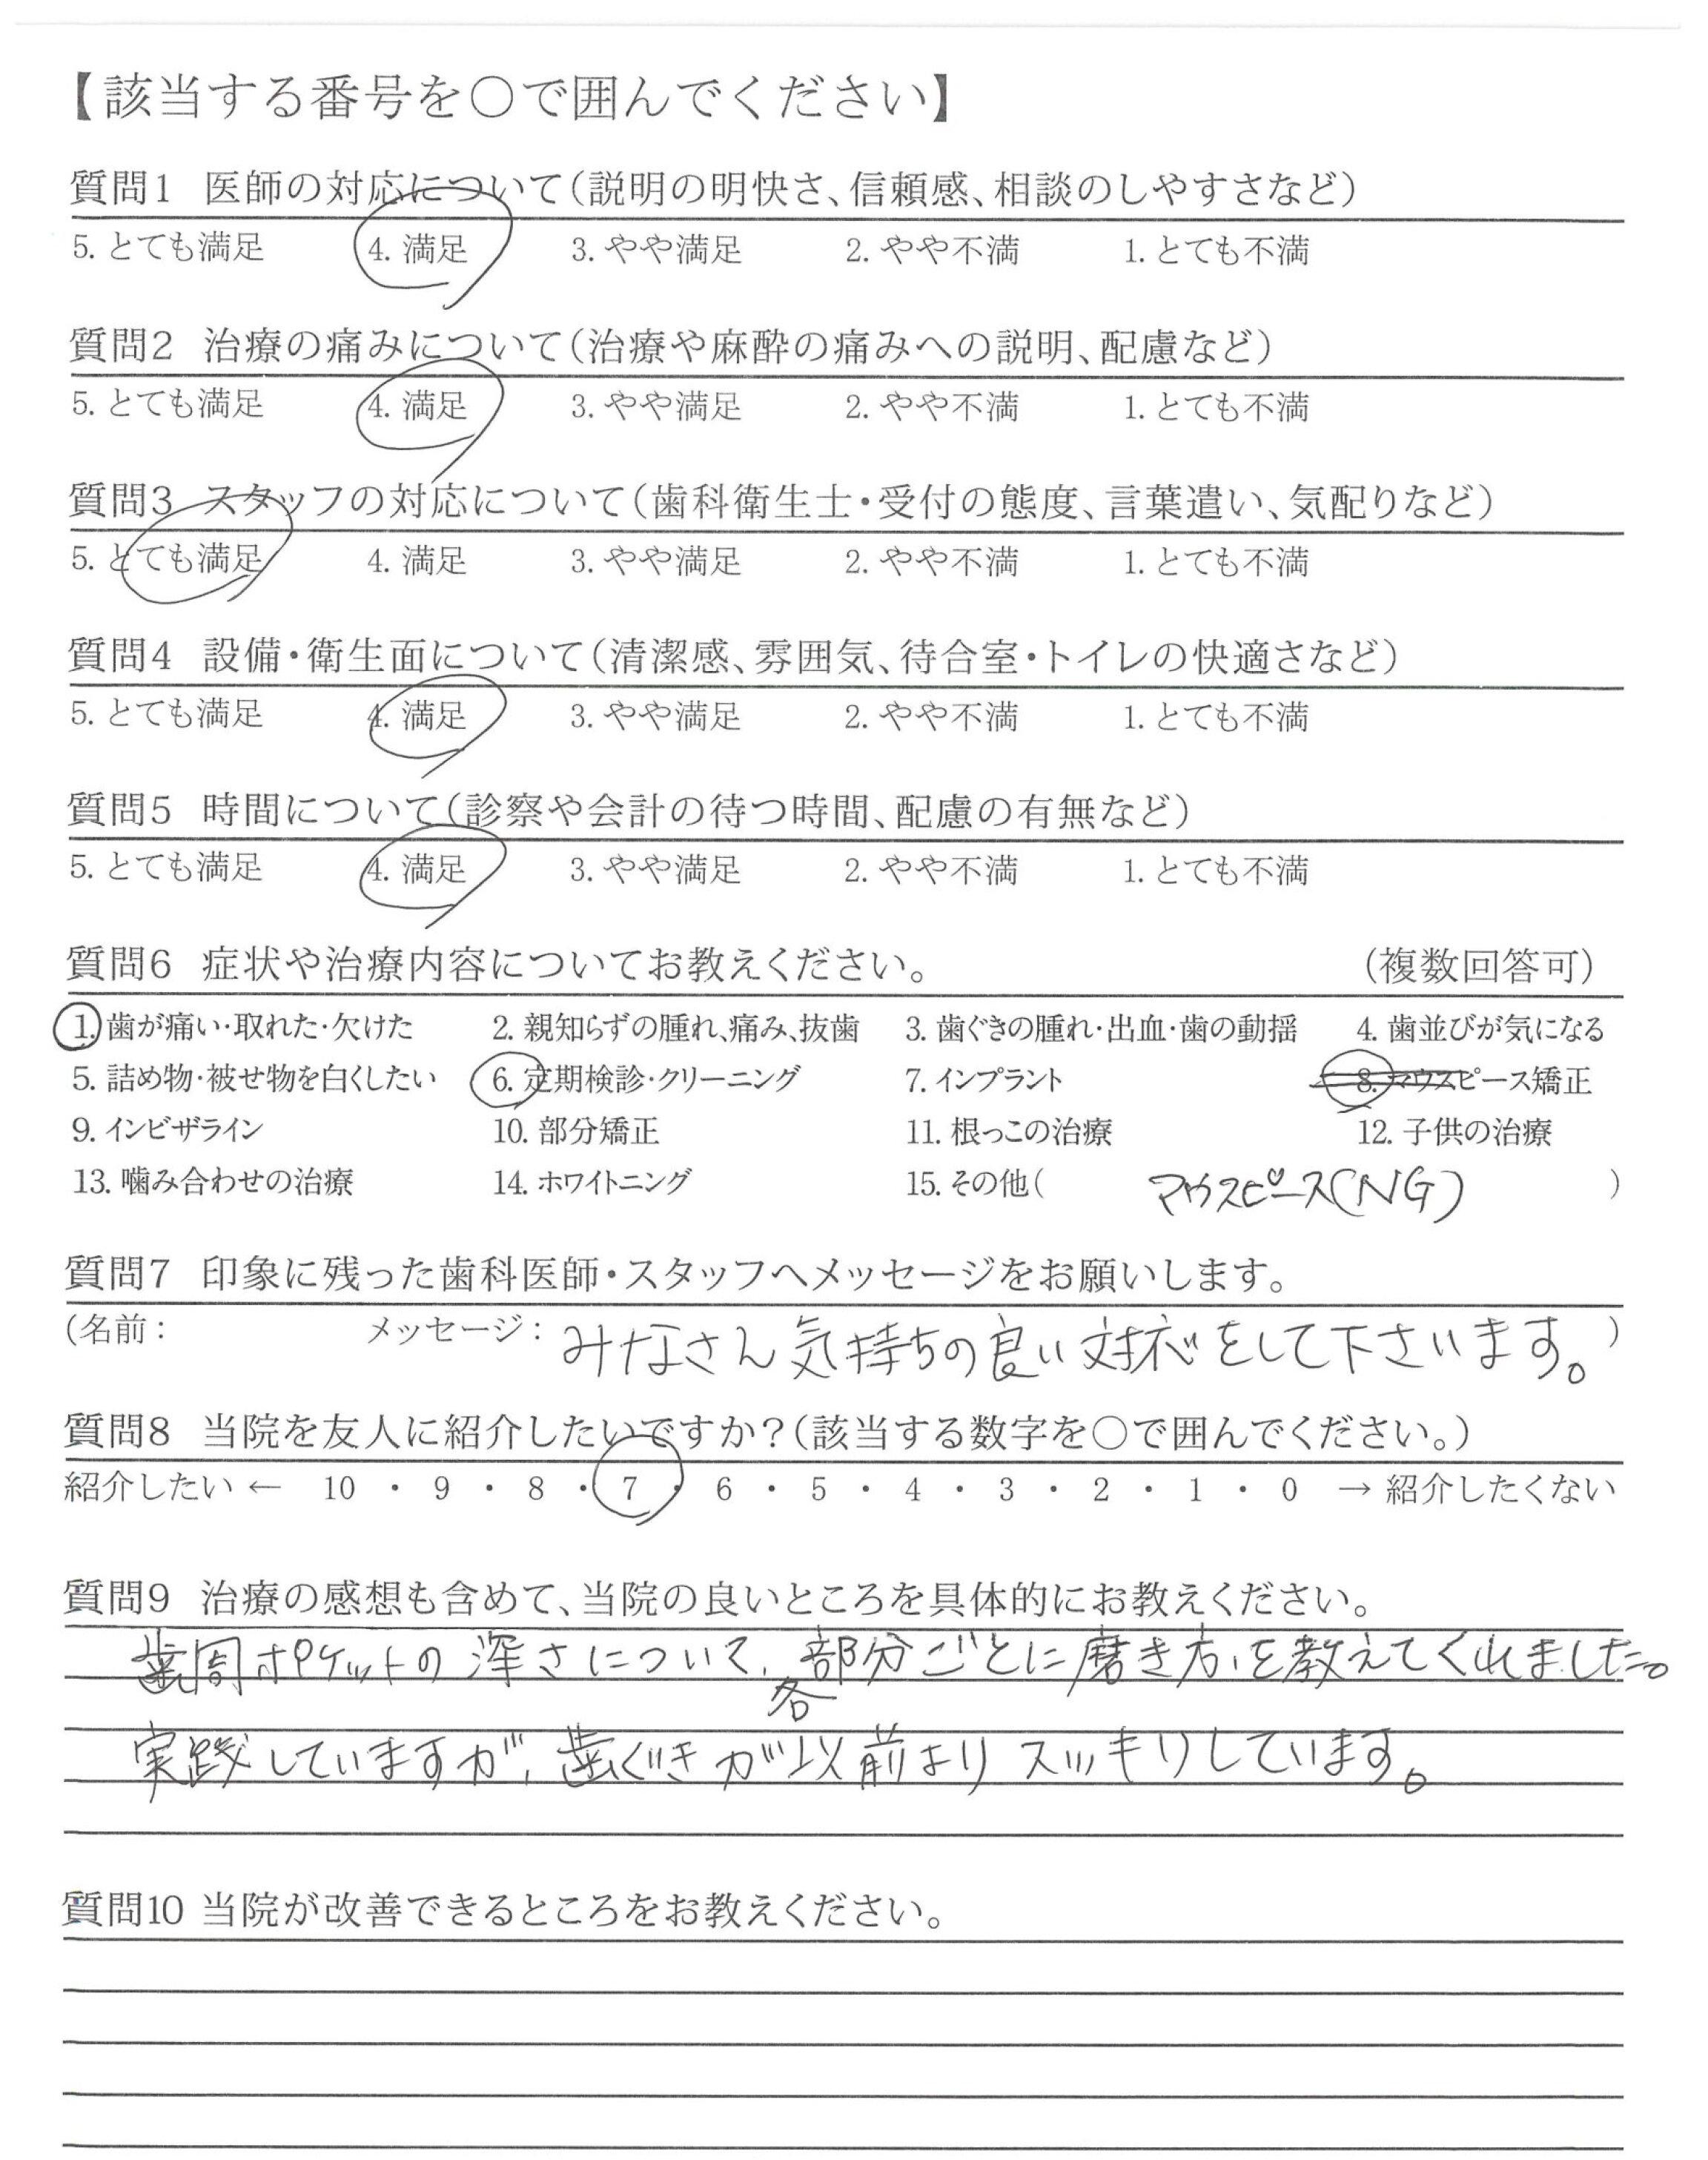 【該当する番号を○で囲んでください】
質問1 医師の対応について（説明の明快さ、信頼感、相談のしやすさなど）
5. とても満足 4. 満足 3. やや満足 2. やや不満 1. とても不満
質問2 治療の痛みについて（治療や麻酔の痛みへの説明、配慮など）
5. とても満足 4. 満足 3. やや満足 2. やや不満 1. とても不満
質問3 スタッフの対応について（歯科衛生士・受付の態度、言葉遣い、気配りなど）
5. とても満足 4. 満足 3. やや満足 2. やや不満 1. とても不満
質問4 設備・衛生面について（清潔感、雰囲気、待合室・トイレの快適さなど）
5. とても満足 4. 満足 3. やや満足 2. やや不満 1. とても不満
質問5 時間について（診察や会計の待つ時間、配慮の有無など）
5. とても満足 4. 満足 3. やや満足 2. やや不満 1. とても不満
質問6 症状や治療内容についてお教えください。 （複数回答可）
1. 歯が痛い・取れた・欠けた 2. 親知らずの腫れ、痛み、抜歯 3. 歯ぐきの腫れ・出血・歯の動揺 4. 歯並びが気になる
5. 詰め物・被せ物を白くしたい 6. 定期検診・クリーニング 7. インプラント 8. マウスピース矯正
9. インビザライン 10. 部分矯正 11. 根っこの治療 12. 子供の治療
13. 噛み合わせの治療 14. ホワイトニング 15. その他（ マウスピース（NG） ）
質問7 印象に残った歯科医師・スタッフへメッセージをお願いします。
（名前： メッセージ： みなさん気持ちの良い対応をして下さいます。 ）
質問8 当院を友人に紹介したいですか？（該当する数字を○で囲んでください。）
紹介したい ← 10 ・ 9 ・ 8 ・ 7 ・ 6 ・ 5 ・ 4 ・ 3 ・ 2 ・ 1 ・ 0 → 紹介したくない
質問9 治療の感想も含めて、当院の良いところを具体的にお教えください。
歯周ポケットの深さについて、各部分ごとに磨き方を教えてくれました。
実践していますが、歯ぐきが以前よりスッキリしています。
質問10 当院が改善できるところをお教えください。